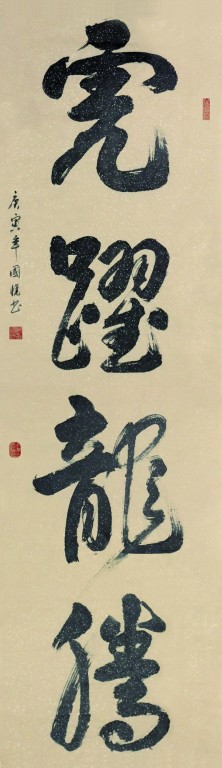 虎躍龍騰
庚寅年國悦书